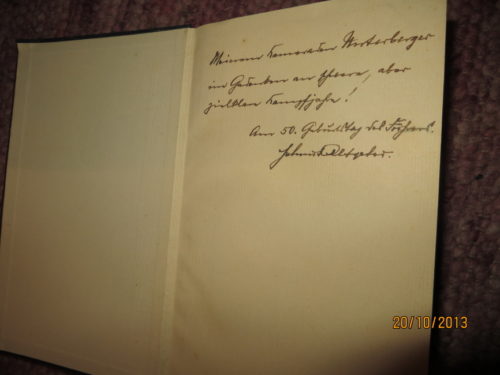 Meinem Kameraden Westerberger
im Gedenken an schwere, aber
Kampfjahre!
Am 50. Geburtstag des Führers.
20/10/2013